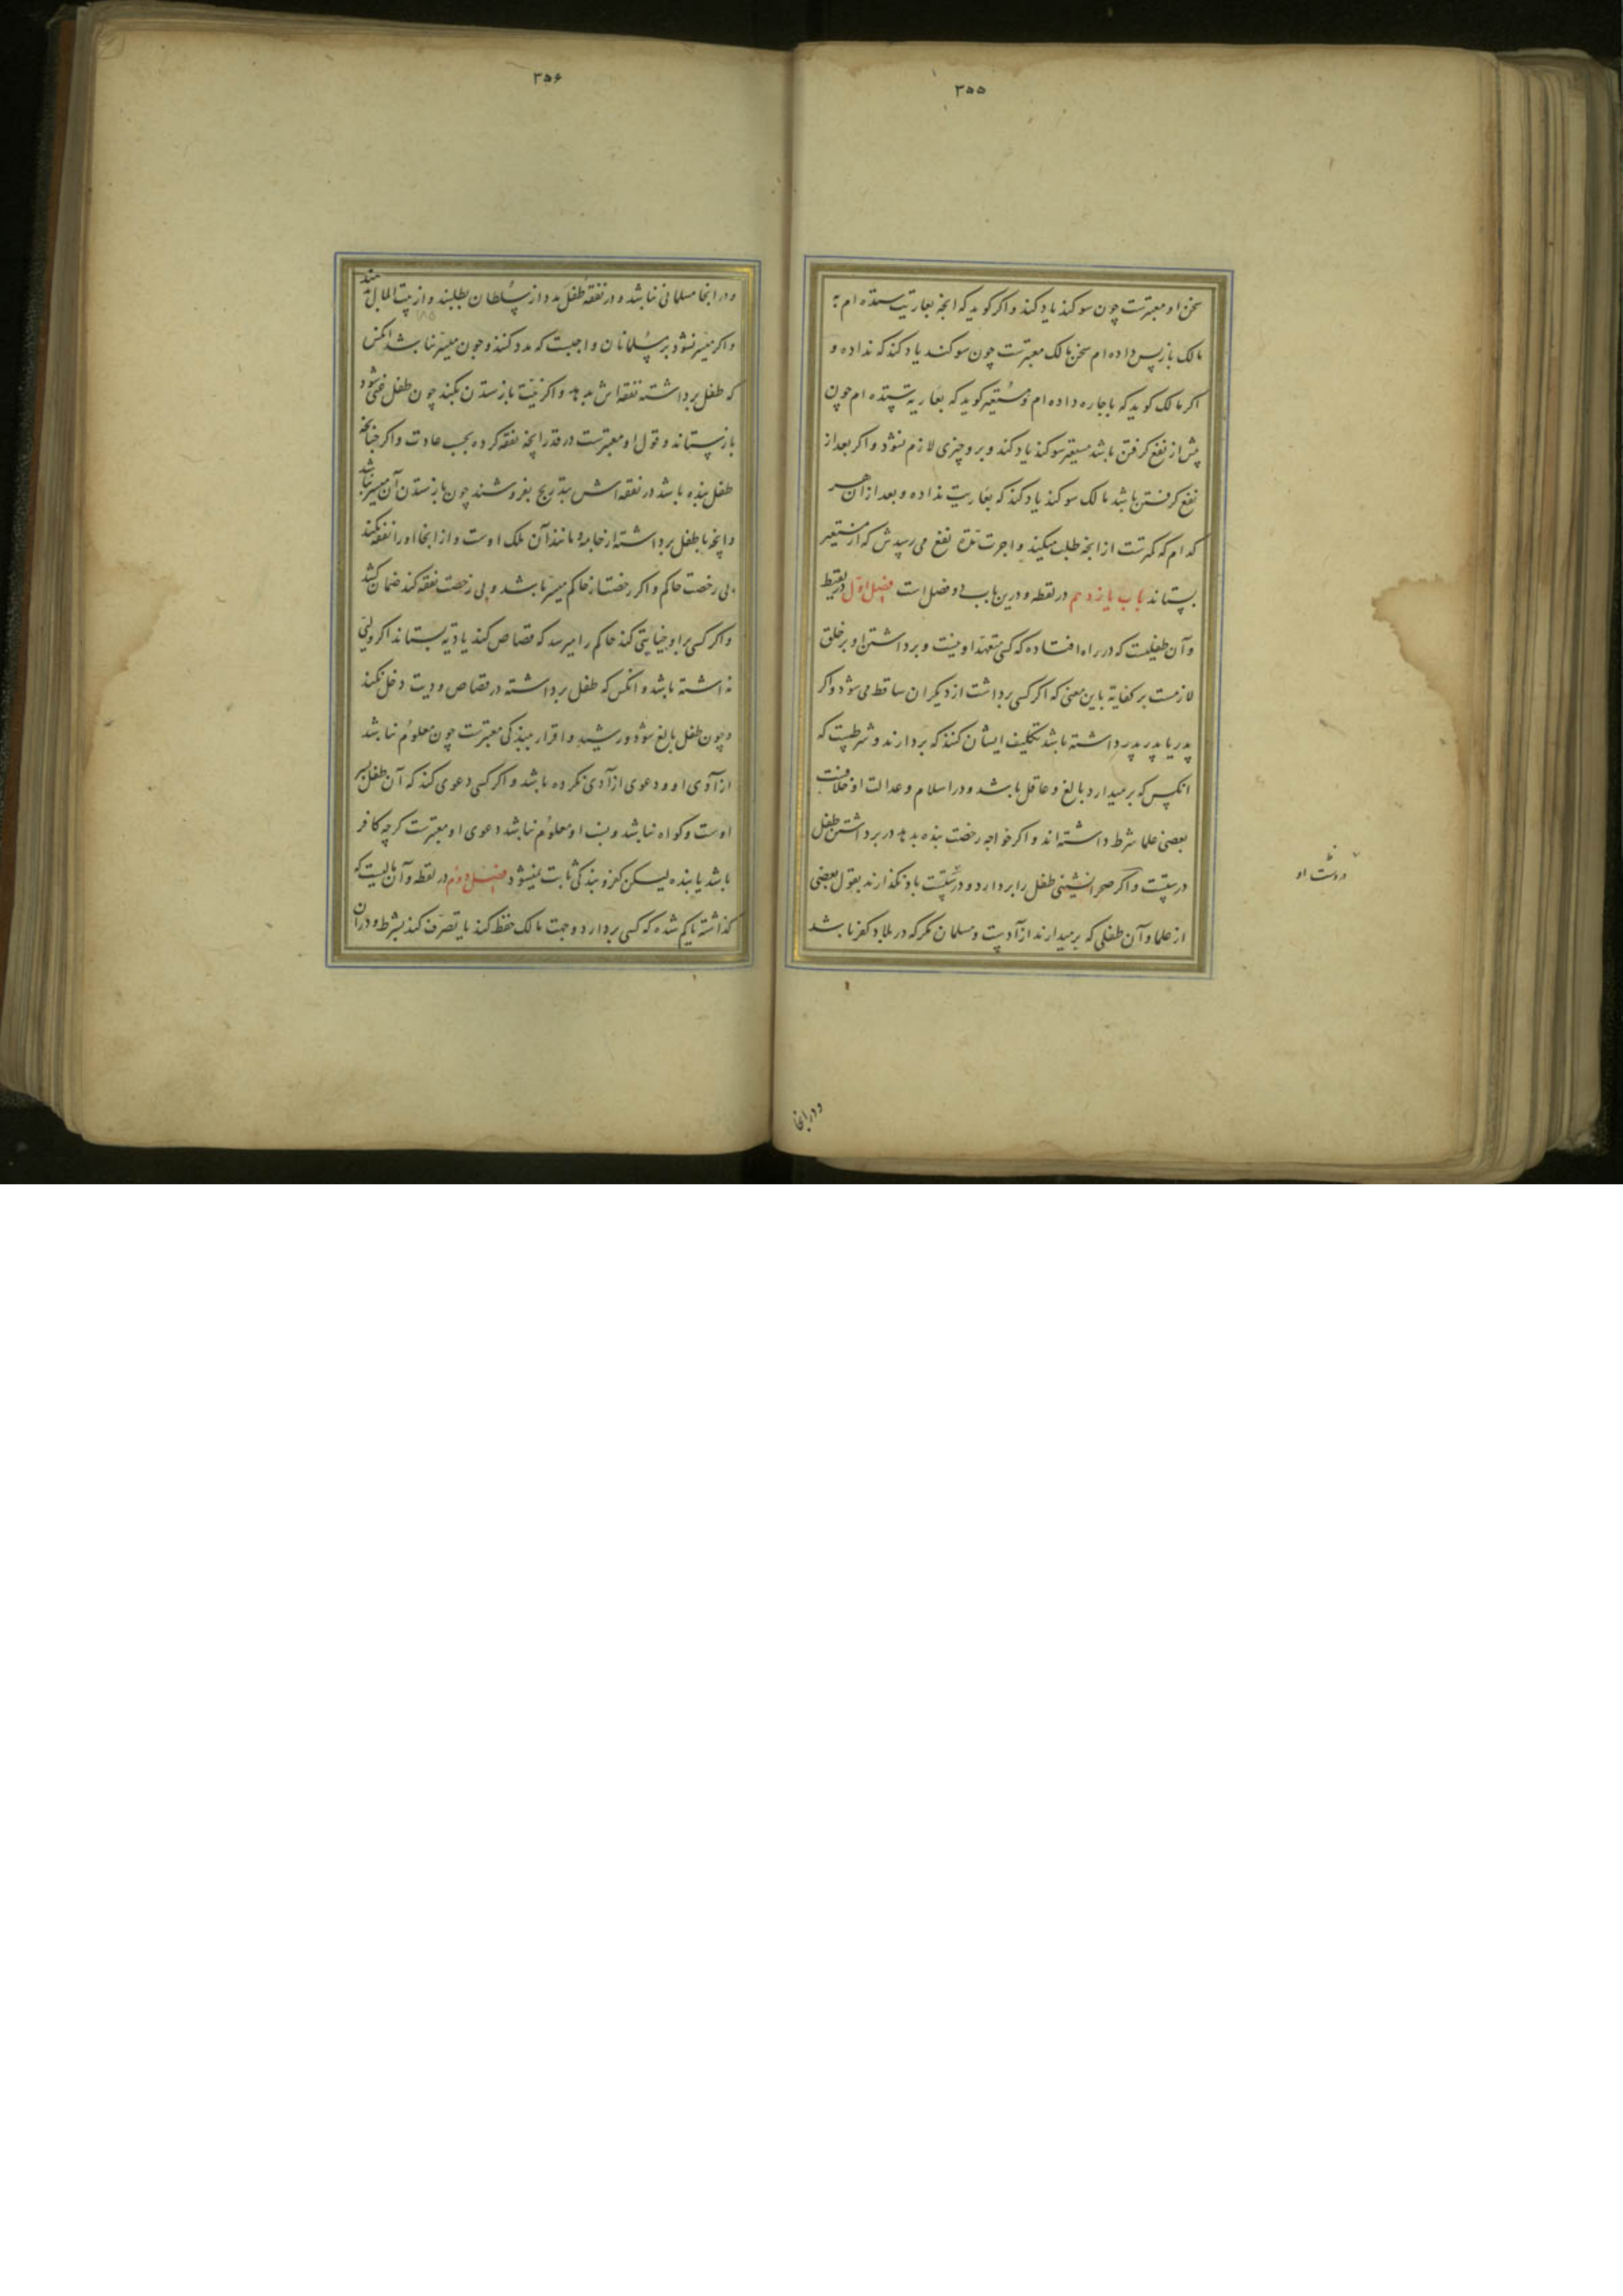 ۳۵۵
سخن او معتبرست چون سوکند یاد کند و اکر کوید که انچه بعاریت ستده ام به
مالک باز پس داده ام سخن مالک معتبرست چون سوکند یاد کند که نداده و
اکر مالک کوید که باجاره داده ام و مستعیر کوید که بعاریه ستده ام چون
پیش از نفع کرفتن باشد مستعیر سوکند یاد کند و برو چیزی لازم نشود و اکر بعد از
نفع کرفتن باشد مالک سوکند یاد کند که بعاریت نداده و بعد از آن هر
کدام که کمترست از انچه طلب میکند و اجرت مدّة نفع می رسدش که از مستعیر
بستاند باب یازدهم در لقطه و درین باب دو فصل است فصل اوّل در لقیط
و آن طفلیست که در راه افتاده که کسی متعهّد او نیست و برداشتن او بر خلق
لازمست بر کفایة باین معنی که اکر کسی برداشت از دیکران ساقط می شود و اکر
پدر یا پدر پدر داشته باشد تکلیف ایشان کنند که بردارند و شرطست که
انکس که برمیدارد بالغ و عاقل باشد و در اسلام و عدالت او خلافست
بعضی علما شرط داشته اند و اکر خواجه رخصت بنده بدهد در برداشتن طفل
درستست و اکر صحرانشینی طفل را بردارد درستست باو نکذارند بقول بعضی
از علما و آن طفلی که برمیدارند ازآدست و مسلمان مکر که در بلاد کفر باشد
در دست او
و در انجا
۳۵۶
و در انجا مسلمانی نباشد و در نفقهٔ طفل مدد از سلطان بطلبند و از بیت المال دهند
و اکر میسّر نشود بر مسلمانان واجبست که مدد کنند و چون میسّر نباشد انکس
که طفل برداشته نفقه اش بدهد و اکر نیّت باز ستدن بکند چون طفل غنی شود
باز ستاند و قول او معتبرست در قدر انچه نفقه کرده بحسب عادت و اکر چنانچه
طفل بنده باشد در نفقه اش بتدریج بفروشند چون باز ستدن آن میسر نباشد
و انچه با طفل برداشته از جامه و مانند آن ملک اوست و از انجا او را نفقه نکند
بی رخصت حاکم و اکر رخصت از حاکم میسّر باشد و بی رخصت نفقه کند ضمان کشد
و اکر کسی برو جنایتی کند حاکم را میرسد که قصاص کند یا دیه بستاند اکر ولیّ
نداشته باشد و انکس که طفل برداشته در قصاص و دیت دخل نکند
و چون طفل بالغ شود و رشید و اقرار ببندکی معتبرست چون معلوم نباشد
ازآدی او و دعوی ازآدی نکرده باشد و اکر کسی دعوی کند که آن طفل پسر
اوست و کواه نباشد و نسب او معلوم نباشد دعوی او معتبرست کرچه کافر
باشد یا بنده لیکن کفر و بندکی ثابت نمیشود فصل دوم در لقطه و آن مالیست که
کذاشته یا کم شده که کسی بردارد و جهت مالک حفظ کند یا تصرّف کند بشرط و در آن